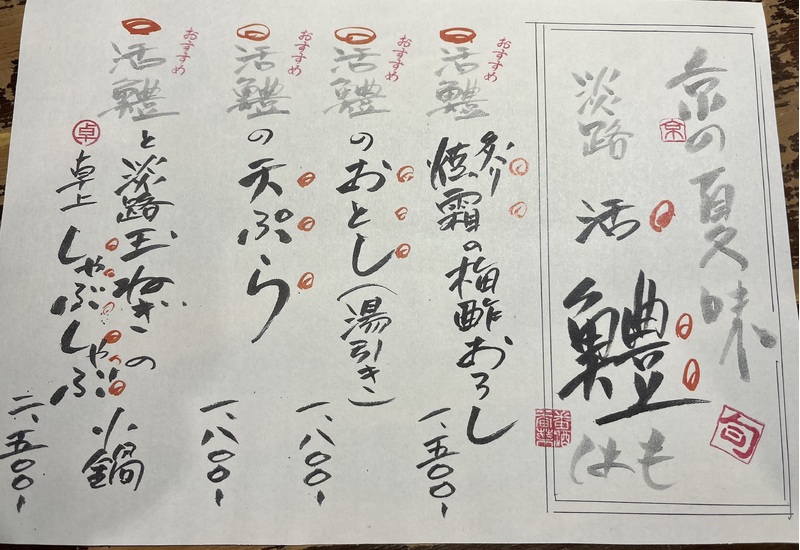 京の夏味
京
旬
淡路 活 鱧 はも
おすすめ
活鱧 炙り
焼霜の梅酢おろし
一、五〇〇-
おすすめ
活鱧のおとし(湯引き)
一、八〇〇-
おすすめ
活鱧の天ぷら
一、八〇〇-
おすすめ
活鱧と淡路玉ねぎの
卓
卓上しゃぶしゃぶ小鍋
二、五〇〇-